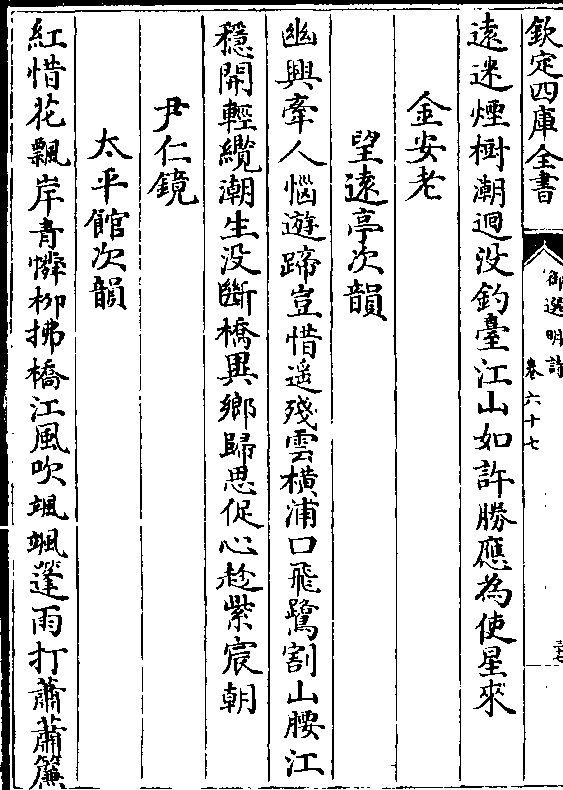 欽定四庫全書
御選明詩
卷六十七
遠迷煙樹潮迴没釣臺江山如許勝應為使星來
金安老
望遠亭次韻
幽興牽人惱遊蹄豈惜遥殘雲橫浦口飛鷺割山腰江
穩開輕纜潮生没斷橋異鄉歸思促心趂紫宸朝
尹仁鏡
太平館次韻
紅惜花飄岸青憐柳拂橋江風吹颯颯蓬雨打蕭蕭簾